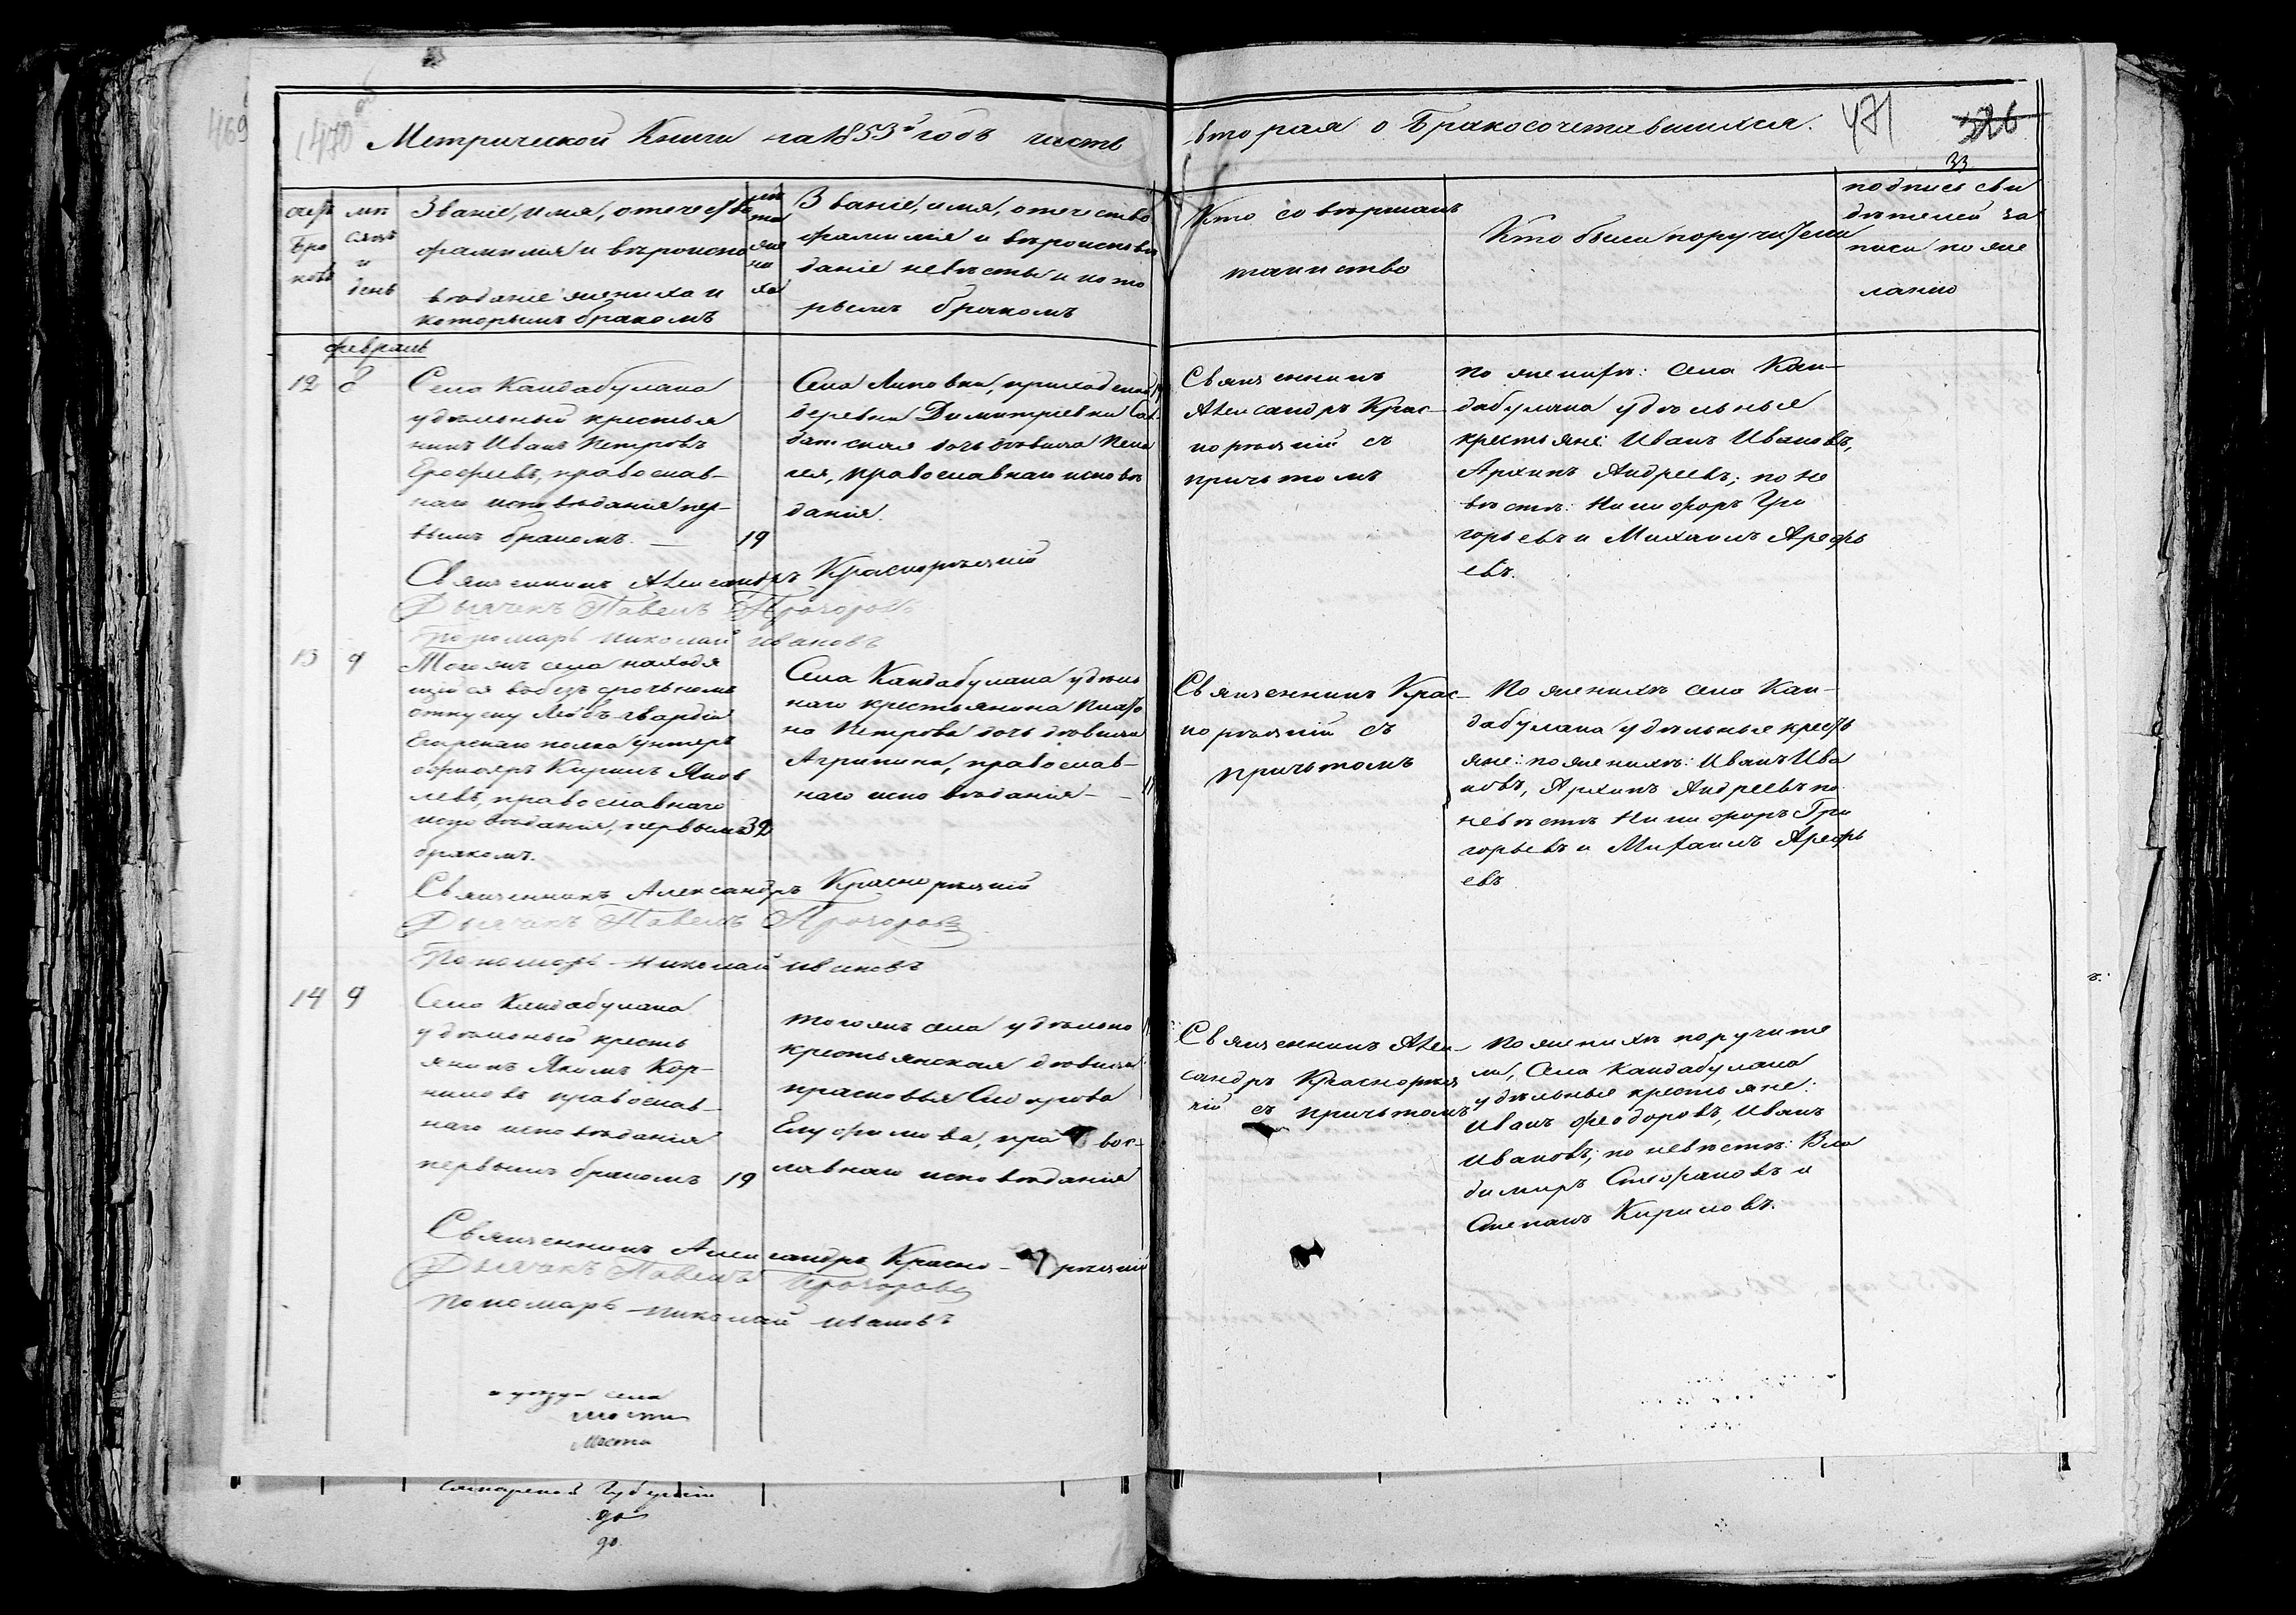 469
470
Метрической Книги на 1853й годъ часть
вторая о Бракосочетавшихся.
471
326
33
счетъ бра ковъ
мѣ сяцъ и день
Званіе, имя, отечество
фамилія и вѣроиспо
вѣданіе жениха и
которымъ бракомъ
лѣ та же ни ха
Званіе, имя, отечество
фамилія и вѣроисповѣ
даніе невѣсты и кото
рымъ бракомъ
Кто совершалъ
таинство
Кто были поручители
подпись сви
дѣтелей за
писи по же
ланію
февраль
12
8
Села Кандабулака
удѣльный крестья
нинъ Иванъ Петровъ
Ерофеевъ, православ-
наго исповѣданія пер-
вымъ бракомъ. —
19
Села Липовки, приходской
деревни Димитріевки Сол
датская дочь дѣвица Пела
гея, православнаго исповѣ
данія.
Священникъ
Александръ Крас-
норѣчій съ
причтомъ
по женихѣ: Села Кан-
дабулака удѣльные
крестьяне: Иванъ Ивановъ,
Архипъ Андреевъ; по не
вѣстѣ: Никифоръ Гри
горьевъ и Михаилъ Арефь
евъ.
Священникъ Александръ Краснорѣчій
Дьячекъ Павелъ Прохоровъ
Пономарь Николай Ивановъ
13
9
Тогожъ села находя
щійся въ безсрочномъ
отпуску Лейбъ-гвардіи
Егерскаго полка унтеръ
офицеръ Кирилъ Яков
левъ, православнаго
исповѣданія, первымъ
бракомъ.
32
Села Кандабулака удѣль
наго крестьянина Плато
на Петрова дочь дѣвица
Агрипина, православ-
наго исповѣданія —
Священникъ Крас-
норѣчій съ
причтомъ
По женихѣ села Кан-
дабулака удѣльные кресть
яне: по женихѣ: Иванъ Ива
новъ, Архипъ Андреевъ по
невѣстѣ Никифоръ Гри
горьевъ и Михаилъ Арефь
евъ
Священникъ Александръ Краснорѣчій
Дьячекъ Павелъ Прохоровъ
Пономарь Николай Ивановъ
14
9
Села Кандабулака
удѣльный кресть
янинъ Якимъ Кор-
ниловъ православ-
наго исповѣданія
первымъ бракомъ
19
тогожъ села удѣльно
крестьянская дѣвица
Прасковья Сидорова
Евфимова, правос-
лавнаго исповѣданія
Священникъ Алек-
сандръ Краснорѣ
чій съ причтомъ
По женихѣ поручите
ли, Села Кандабулака
удѣльные крестьяне:
Иванъ Феодоровъ, Иванъ
Ивановъ; по невѣстѣ: Вла
димиръ Стефановъ и
Степанъ Кириловъ.
Священникъ Александръ Красно-рѣчій
Дьячекъ Павелъ Прохоровъ
Пономарь Николай Ивановъ
села
Мѣста
Самарской Губерніи
до
до.